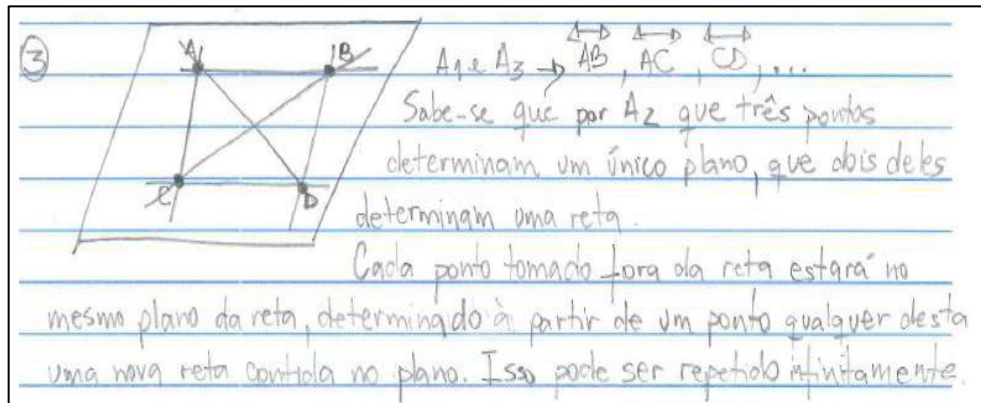 3
A B
C D
A1 e A3 → AB, AC, CD, ...
Sabe-se que por A2 que três pontos
determinam um único plano, que dois deles
determinam uma reta.
Cada ponto tomado fora da reta estará no
mesmo plano da reta, determinado à partir de um ponto qualquer desta
uma nova reta contida no plano. Isso pode ser repetido infinitamente.